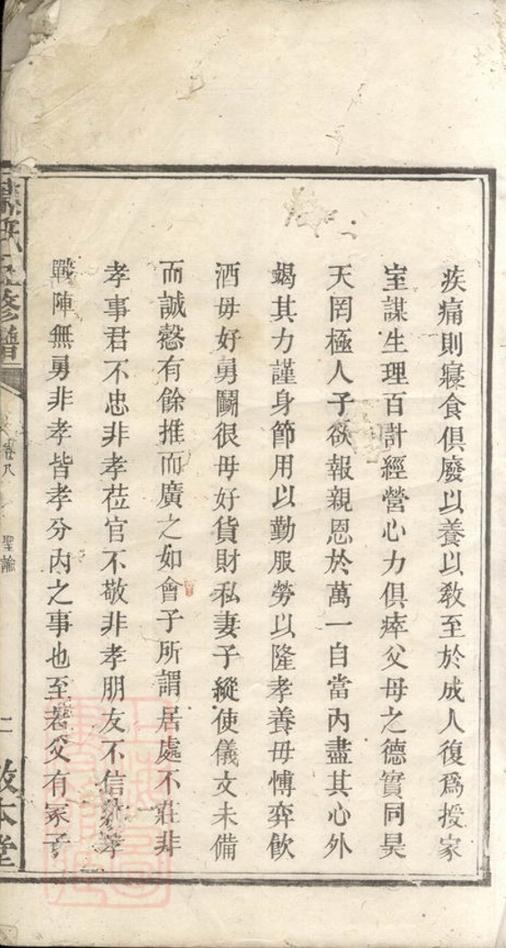 疾痛則寢食俱廢以養以敎至於成人復爲授家
室謀生理百計經營心力俱瘁父母之德實同昊
天罔極人子欲報親恩於萬一自當內盡其心外
竭其力謹身節用以勤服勞以隆孝養毋愽弈飮
酒毋好勇鬭很毋好貨財私妻子縱使儀文未備
而誠慤有餘推而廣之如會子所謂居處不莊非
孝事君不忠非孝莅官不敬非孝朋友不信非孝
戰陣無勇非孝皆孝分內之事也至若父有冢子
氏五修譜
卷八
聖諭
二
敦本堂